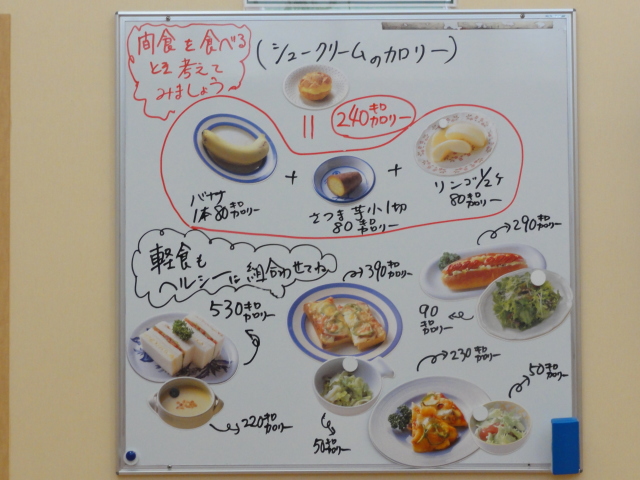 間食を食べる
とき考えて
みましょう
(シュークリームのカロリー)
=
240キロカロリー
バナナ
1本80キロカロリー
+
さつま芋小1切
80キロカロリー
+
リンゴ1/2ケ
80キロカロリー
軽食も
ヘルシーに組合わせてね
530キロカロリー
220キロカロリー
390キロカロリー
50キロカロリー
290キロカロリー
90キロカロリー
230キロカロリー
50キロカロリー